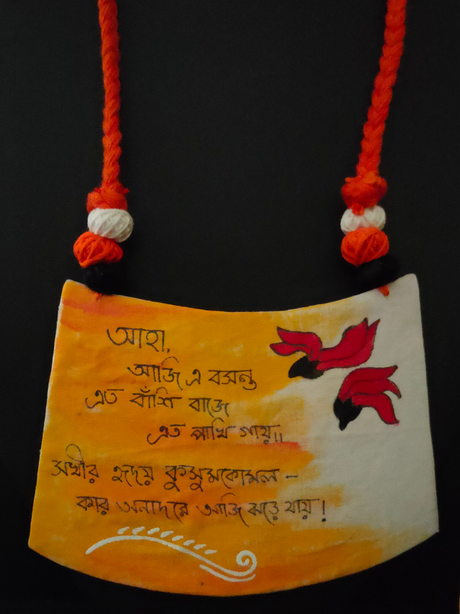 আহা,
আজি এ বসন্ত
এত বাঁশি বাজে
এত পাখি গায়।।
সখীর হৃদয় কুসুমকোমল –
কার অনাদরে আজি ঝরে যায়!